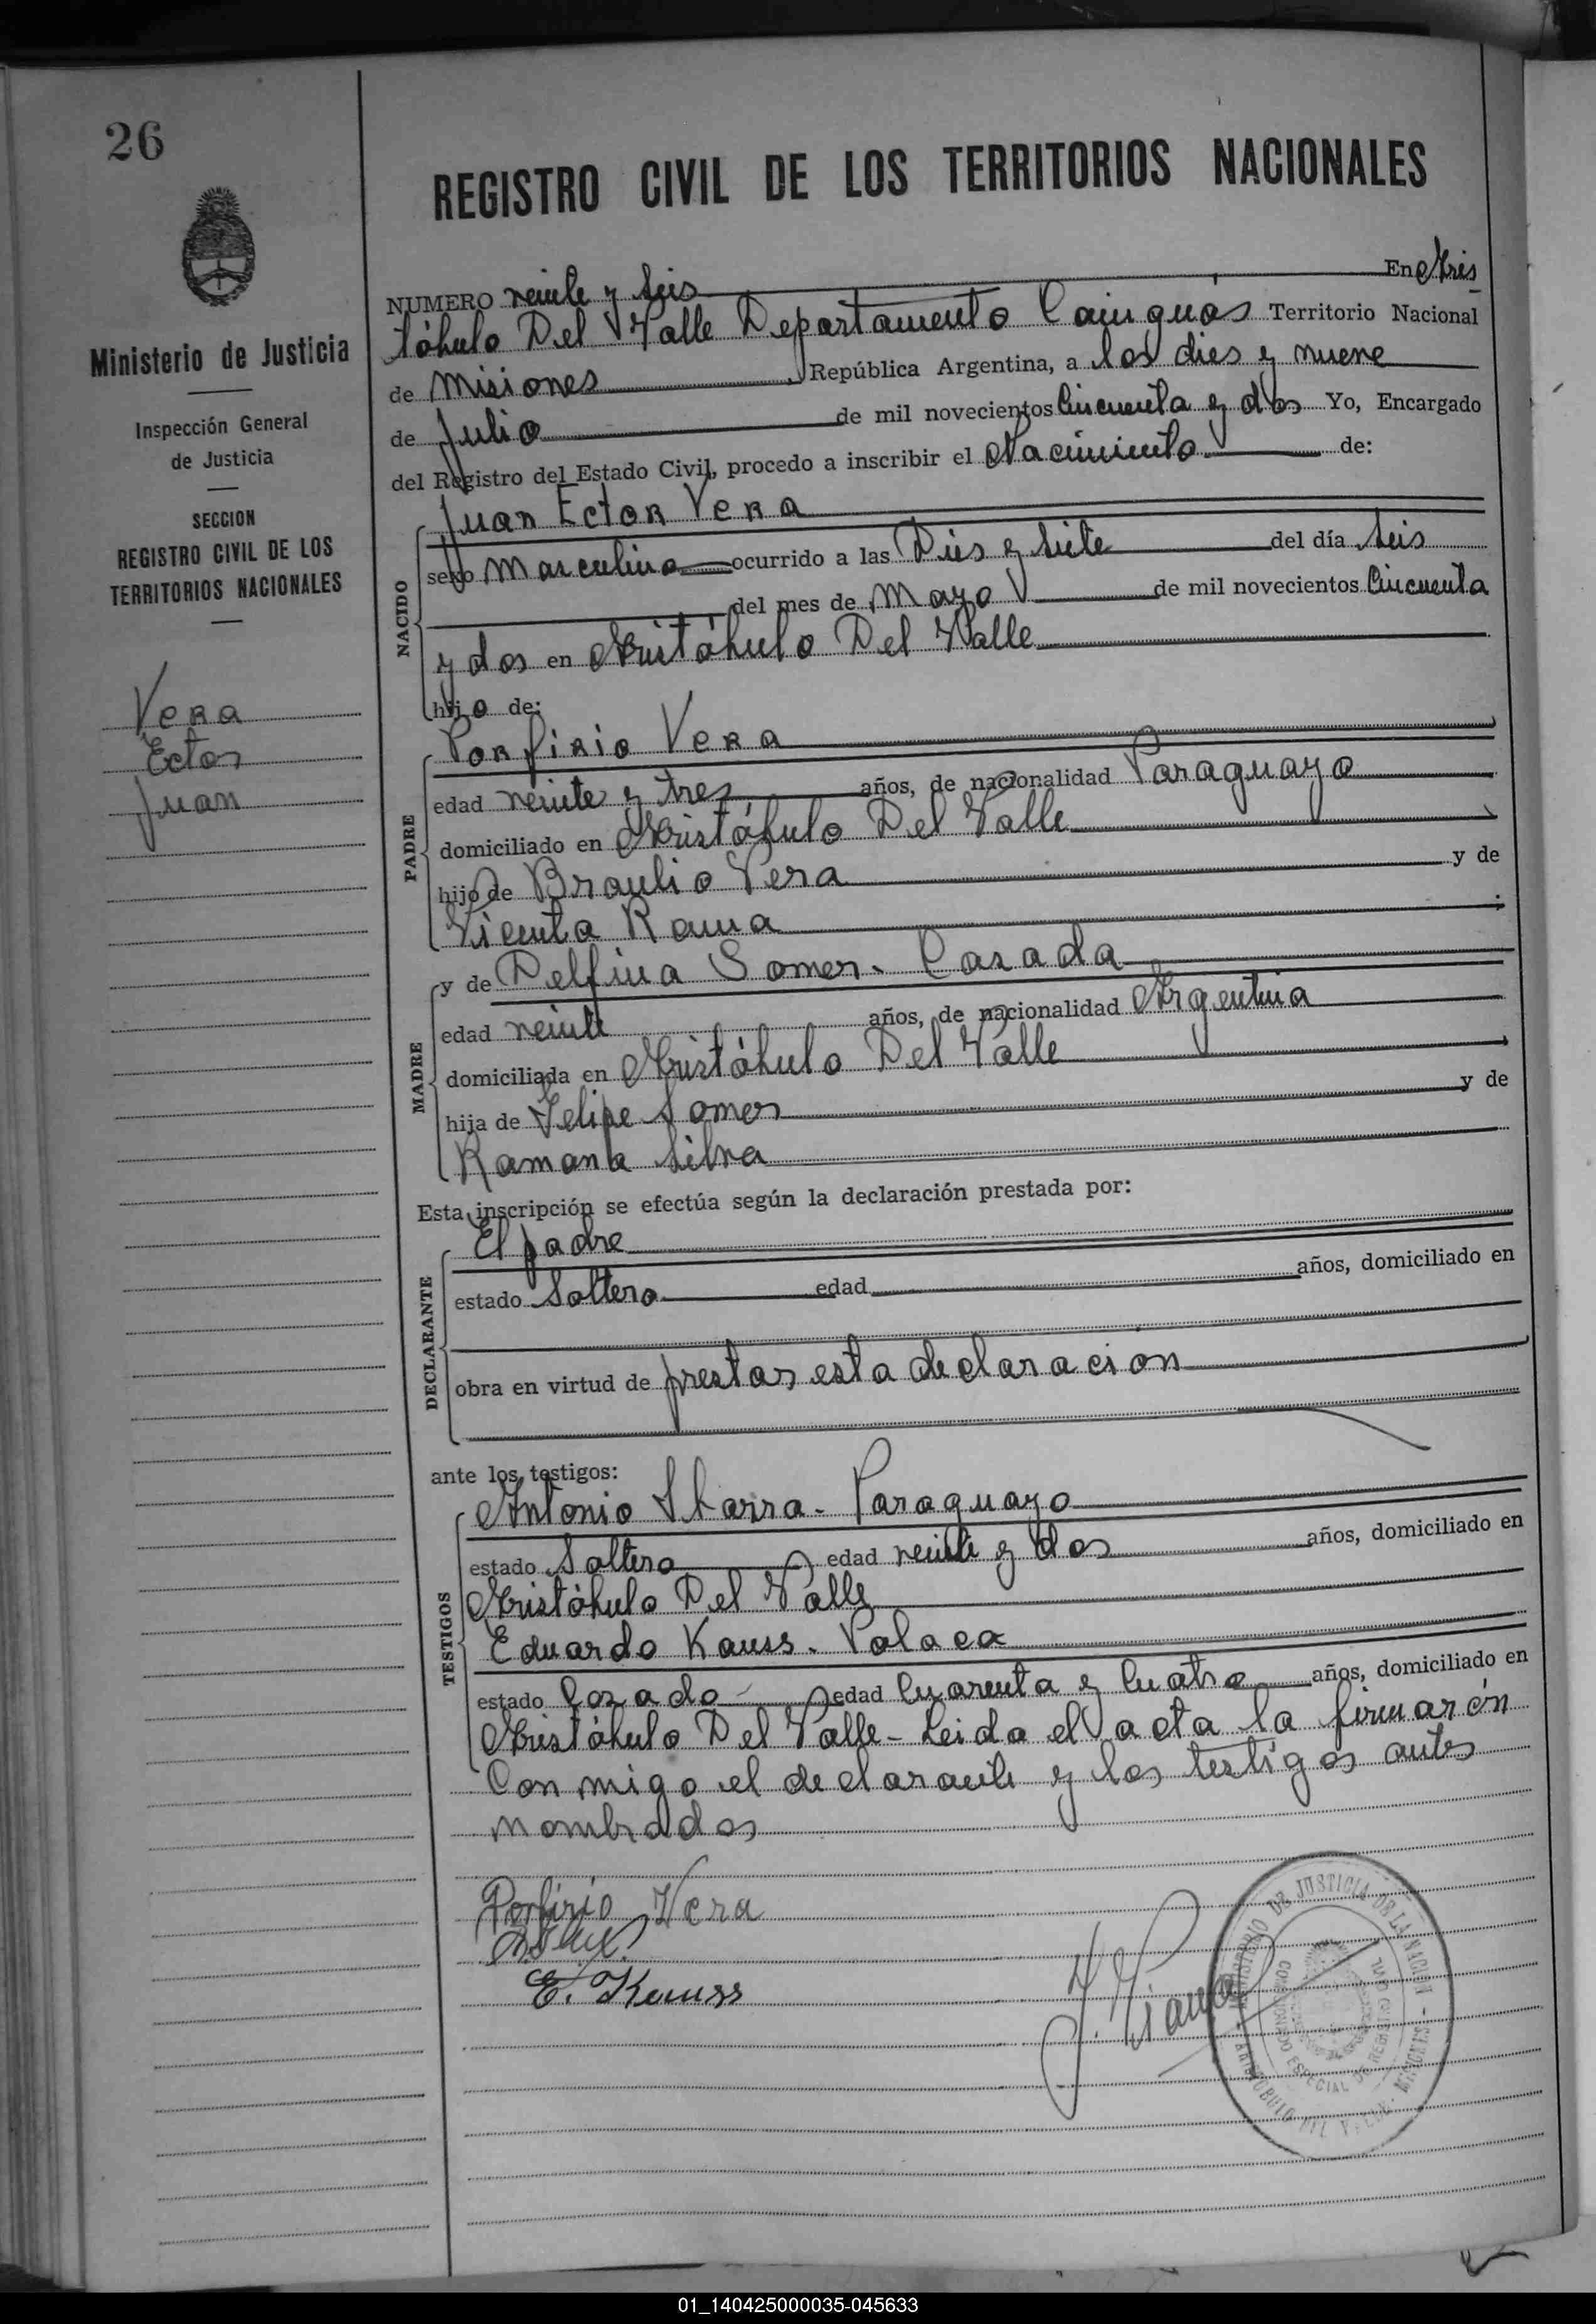 26
REGISTRO CIVIL DE LOS TERRITORIOS NACIONALES
Ministerio de Justicia
Inspección General
de Justicia
SECCION
REGISTRO CIVIL DE LOS
TERRITORIOS NACIONALES
Vera
Ector
Juan
NUMERO veinte y seis En Aris
tóbulo Del Valle Departamento Cainguás Territorio Nacional
de Misiones República Argentina, a los dies y nueve
de Julio de mil novecientos Cincuenta y dos Yo, Encargado
del Registro del Estado Civil, procedo a inscribir el Nacimiento de:
NACIDO
Juan Ector Vera
sexo Masculino ocurrido a las Dies y siete del día seis
del mes de Mayo de mil novecientos Cincuenta
y dos en Aristóbulo Del Valle
hijo de:
PADRE
Porfirio Vera
edad veinte y tres años, de nacionalidad Paraguayo
domiciliado en Aristóbulo Del Valle
hijo de Braulio Vera y de
Vicenta Rama ;
MADRE
y de Delfina Somer. Casada
edad veinte años, de nacionalidad Argentina
domiciliada en Aristóbulo Del Valle
hija de Felipe Somer y de
Ramona Silva
Esta inscripción se efectúa según la declaración prestada por:
DECLARANTE
El padre
estado Soltero edad años, domiciliado en
obra en virtud de prestar esta declaracion
ante los testigos:
TESTIGOS
Antonio Ibarra. Paraguayo
estado Soltero edad veinte y dos años, domiciliado en
Aristóbulo Del Valle
Eduardo Kauss. Polaca
estado Cazado edad Cuarenta y Cuatro años, domiciliado en
Aristóbulo Del Valle - Leida el acta la firmarón
Con migo el declarante y los testigos antes
nombrados
Porfirio Vera
E. Kauss
MINISTERIO DE JUSTICIA DE LA NACION - MISIONES -
ARISTOBULO DEL VALLE
ESPECIAL DE REGISTRO CIVIL
01_140425000035-045633